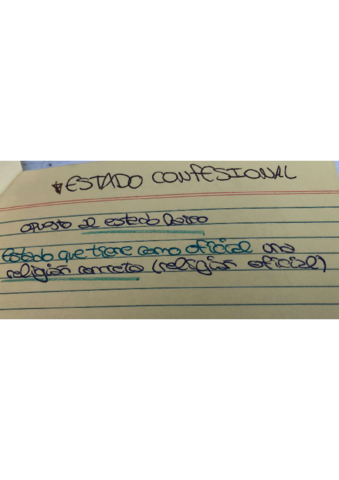 ESTADO CONFESIONAL
opuesto al estado laico
Estado que tiene como oficial una
religión concreta (religión oficial)